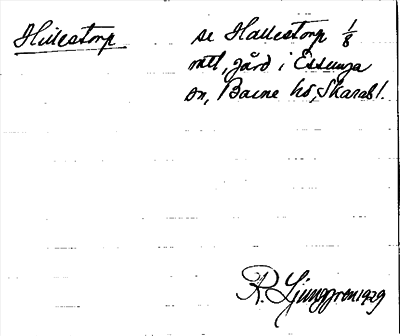 Hillestorp se Hallestorp 1/8
mtl, gård i Essunga
sn, Barne hd, Skarabl.
R. Ljunggren 1929